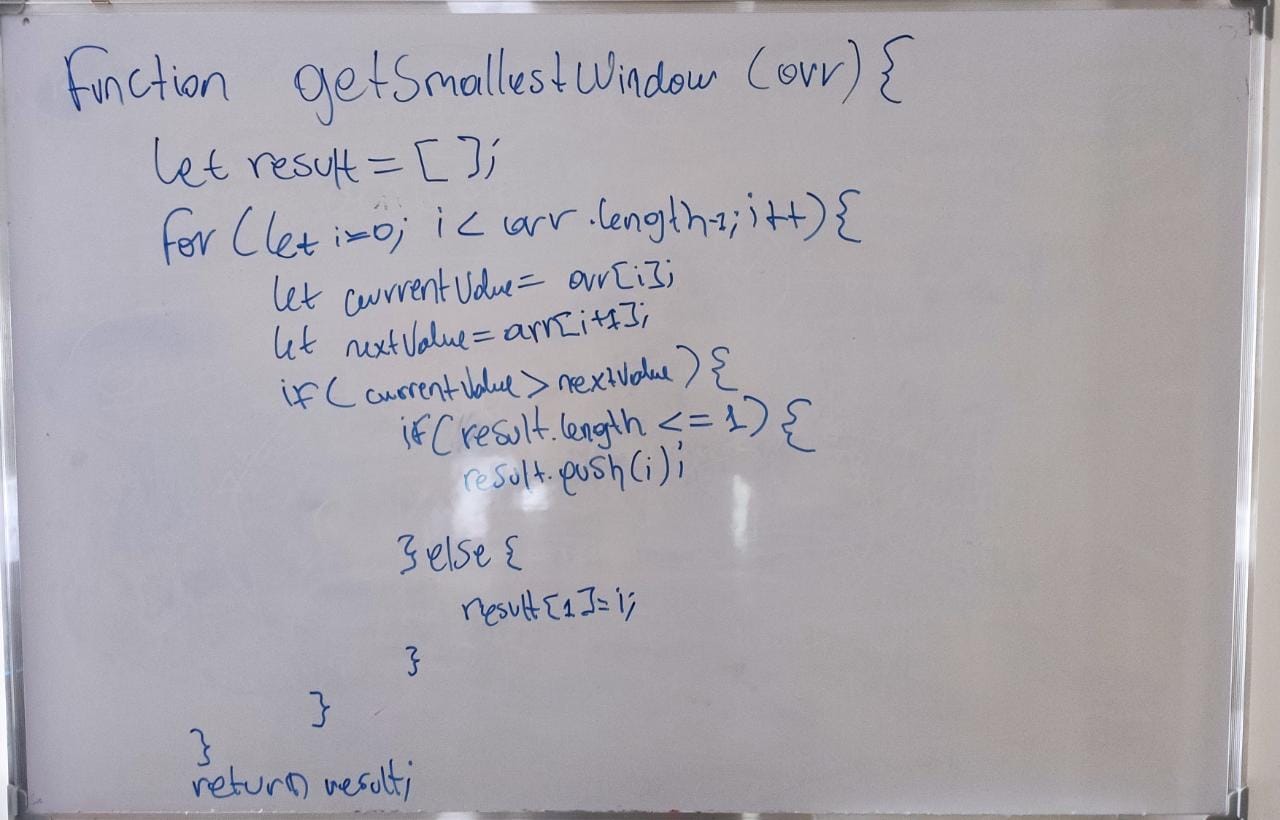 Function getSmallestWindow (arr) {
let result = [ ];
for (let i=0; i < arr.length-1; i++) {
let currentValue = arr[i];
let nextValue = arr[i+1];
if ( currentValue > nextValue ) {
if ( result.length <= 1 ) {
result.push(i);
} else {
result[1]=i;
}
}
}
return result;